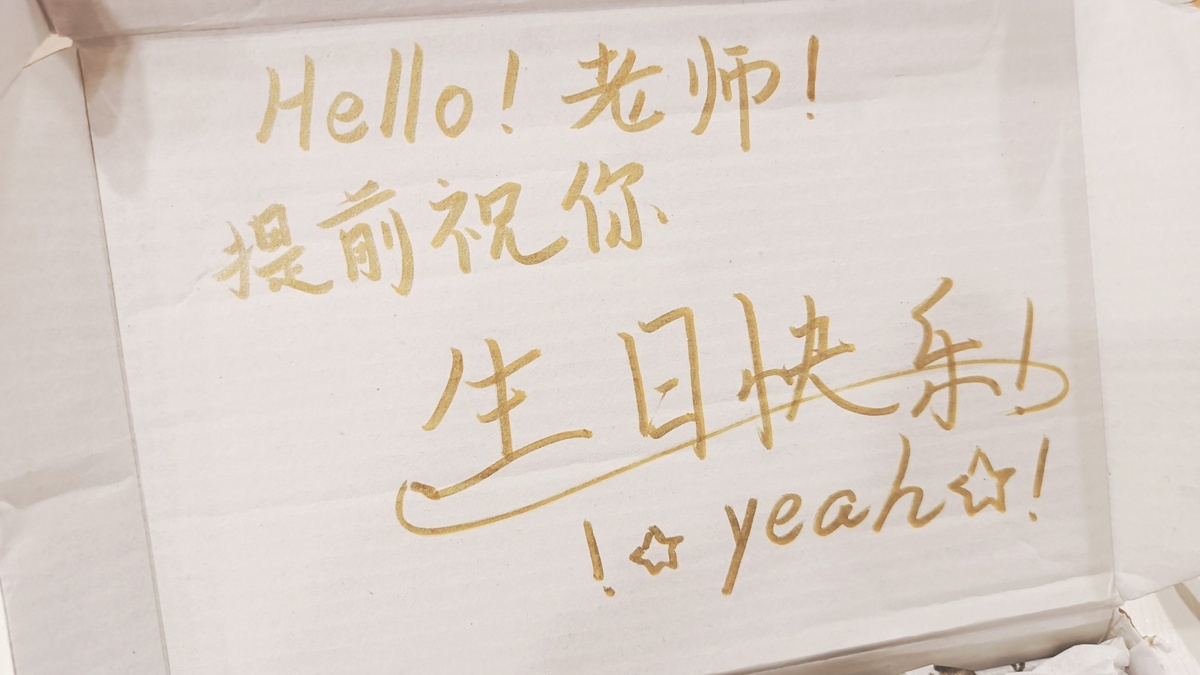 Hello! 老师!
提前祝你
生日快乐!
!☆ yeah☆!